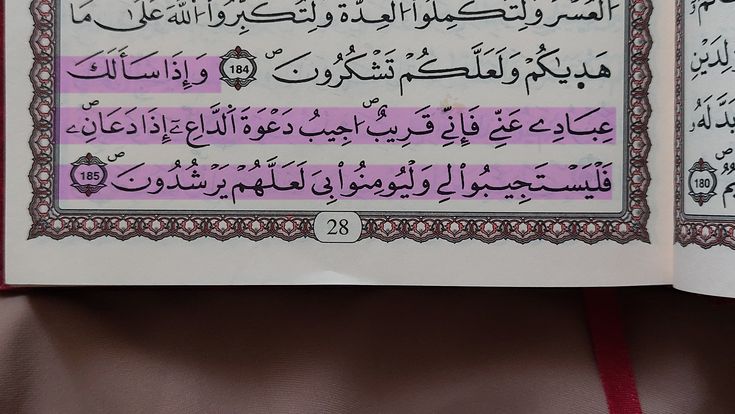 اَ۬لْعُسْرَ وَلِتُكْمِلُواْ اُ۬لْعِدَّةَ وَلِتُكَبِّرُواْ اُ۬للَّهَ عَلَىٰ مَا
هَد۪يٰكُمْ وَلَعَلَّكُمْ تَشْكُرُونَۖ 184 وَإِذَا سَأَلَكَ
عِبَادِے عَنِّے فَإِنِّے قَرِيبٌۖ ا۟جِيبُ دَعْوَةَ اَ۬لدَّاعِۦٓ إِذَا دَعَانِۦۖ
فَلْيَسْتَجِيبُواْ لِے وَلْيُومِنُواْ بِيَ لَعَلَّهُمْ يَرْشُدُونَۖ 185
28
180